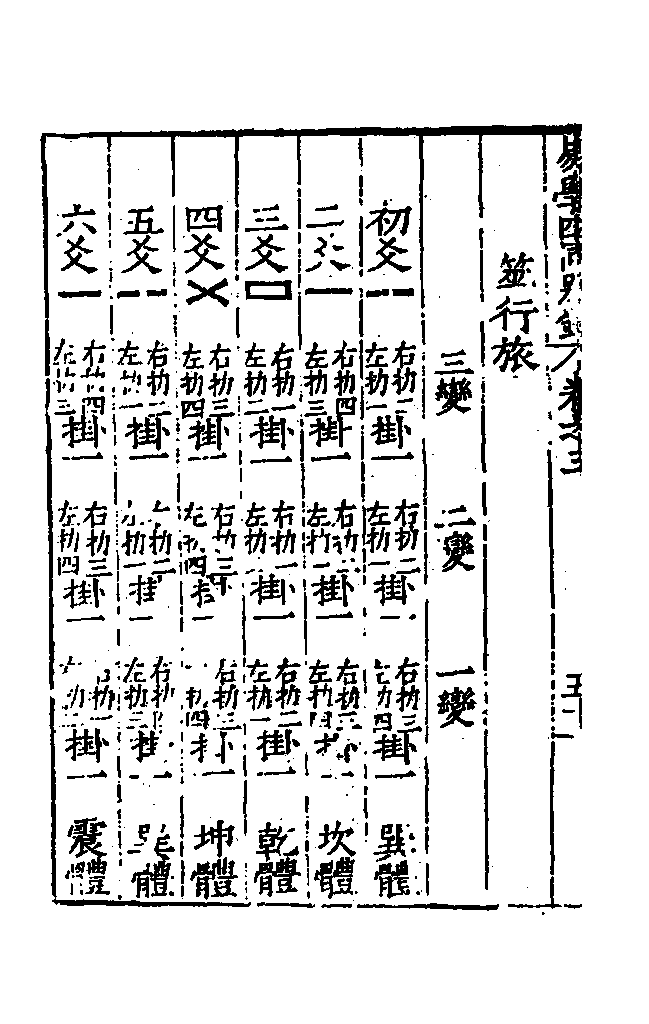 易學四同別錄 卷之三
筮行旅
三變 二變 一變
初爻 右扐二左扐一掛一 右扐二左扐一掛一 右扐三左扐四掛一 巽體
二爻 右扐四左扐三掛一 右扐左扐一掛一 右扐三左扐四掛一 坎體
三爻 右扐一左扐二掛一 右扐一左扐掛一 右扐二左扐一掛一 乾體
四爻 右扐三左扐四掛一 右扐三左扐四掛一 右扐三扐四掛一 坤體
五爻 右扐二左扐一掛一 扐二扐一掛一 右扐左扐三掛一 巽體
六爻 右扐四左扐三掛一 右扐三左扐四掛一 扐一左扐掛一 震體